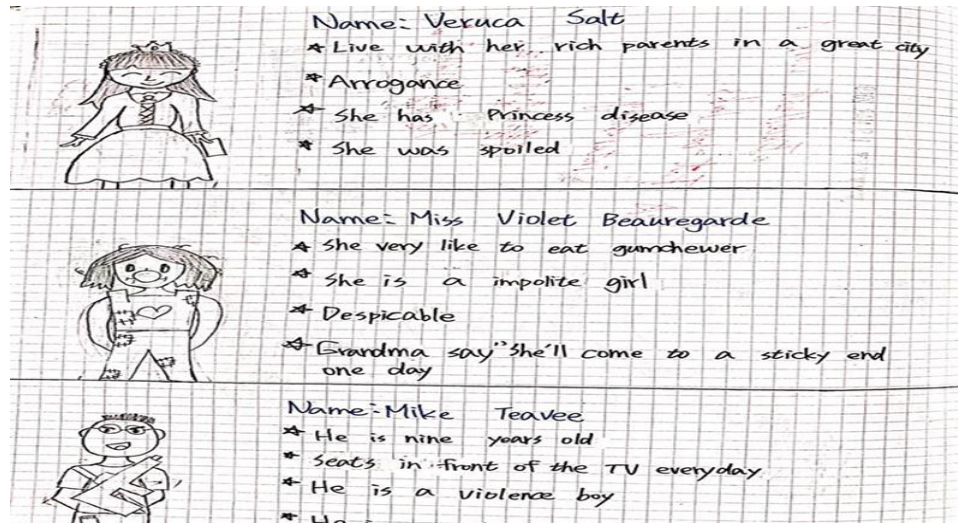 Name: Veruca Salt
* Live with her rich parents in a great city
* Arrogance
* She has Princess disease
* She was spoiled
Name: Miss Violet Beauregarde
* She very like to eat gumchewer
* She is a impolite girl
* Despicable
* Grandma say "She'll come to a sticky end
one day
Name: Mike Teavee
* He is nine years old
* Seats in front of the TV everyday
* He is a violence boy
* He